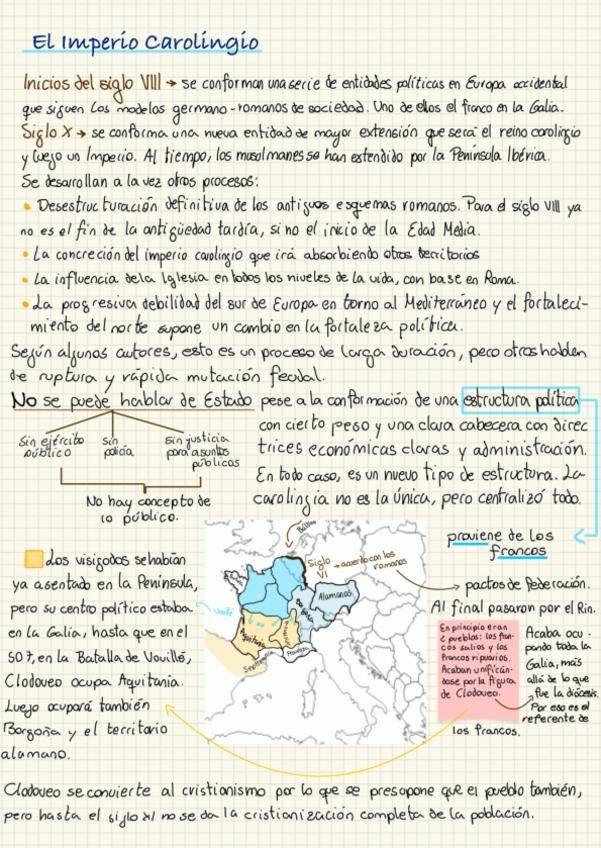 El Imperio Carolingio
Inicios del siglo VIII → se conforman una serie de entidades políticas en Europa occidental
que siguen los modelos germano-romanos de sociedad. Uno de ellos el franco en la Galia.
Siglo X → se conforma una nueva entidad de mayor extensión que será el reino carolingio
y luego un Imperio. Al tiempo, los musulmanes se han extendido por la Península Ibérica.
Se desarrollan a la vez otros procesos:
• Desestructuración definitiva de los antiguos esquemas romanos. Para el siglo VIII ya
no es el fin de la antigüedad tardía, si no el inicio de la Edad Media.
• La concreción del imperio carolingio que irá absorbiendo otros territorios
• La influencia de la Iglesia en todos los niveles de la vida, con base en Roma.
• La progresiva debilidad del sur de Europa en torno al Mediterráneo y el fortaleci-
miento del norte supone un cambio en la fortaleza política.
Según algunos autores, esto es un proceso de larga duración, pero otros hablan
de ruptura y rápida mutación feudal.
No se puede hablar de Estado pese a la conformación de una estructura política
con cierto peso y una clara cabecera con direc
trices económicas claras y administración.
En todo caso, es un nuevo tipo de estructura. La
carolingia no es la única, pero centralizó todo.
Sin ejército
público
Sin
policía
Sin justicia
para asuntos
públicos
No hay concepto de
lo público.
proviene de los
francos
Los visigodos se habían
ya asentado en la Península,
pero su centro político estaba
en la Galia, hasta que en el
507, en la Batalla de Vouillé,
Clodoveo ocupa Aquitania.
Luego ocupará también
Borgoña y el territorio
alamano.
Siglo
VI → acuerdo con los
romanos
Alamanos
Vouillé
Aquitania
Septimania
Provenza
pactos de Federación.
Al final pasaron por el Rin.
En principio eran
2 pueblos: los fran-
cos salios y los
francos ripuarios.
Acaban unificán-
dose por la figura
de Clodoveo.
Acaba ocu-
pando toda la
Galia, más
allá de lo que
fue la diócesis.
Por eso es el
referente de
los francos.
Clodoveo se convierte al cristianismo por lo que se presupone que el pueblo también,
pero hasta el siglo XI no se da la cristianización completa de la población.